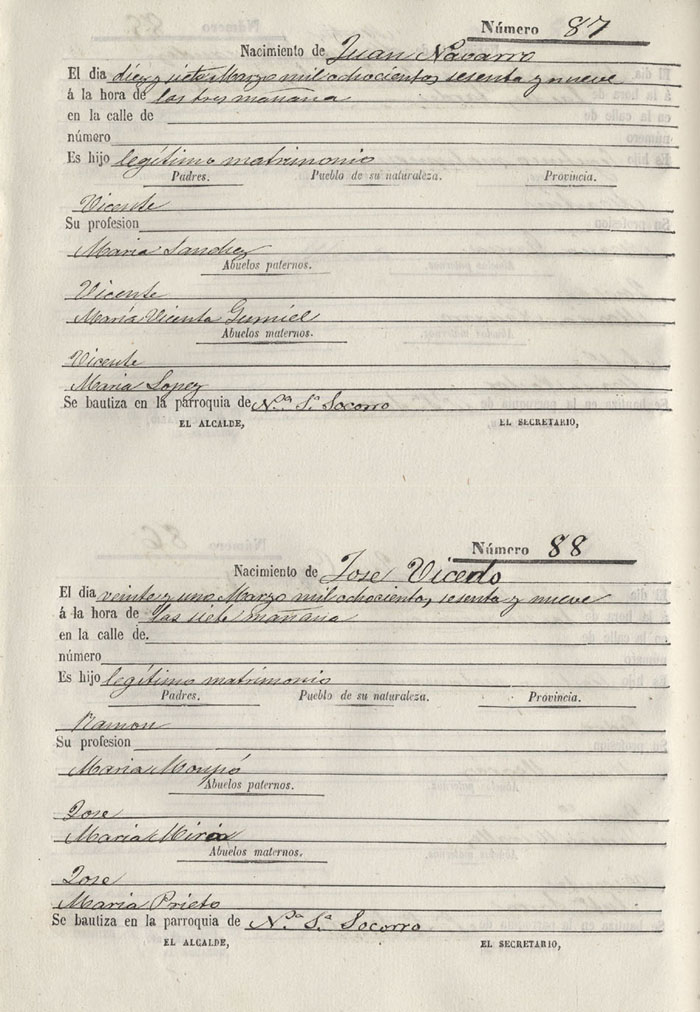 Número 87
Nacimiento de Juan Navarro
El dia diez y siete Marzo mil ochocientos, sesenta y nueve
á la hora de las tres mañana
en la calle de
número
Es hijo legítimo matrimonio
Padres. Pueblo de su naturaleza. Provincia.
Vicente
Su profesion
Maria Sanchez
Abuelos paternos.
Vicente
María Vicenta Gumiel
Abuelos maternos.
Vicente
Maria Lopez
Se bautiza en la parroquia de N.ª S.ª Socorro
EL ALCALDE, EL SECRETARIO,
Número 88
Nacimiento de Jose Vicedo
El dia veinte y uno Marzo mil ochocientos, sesenta y nueve
á la hora de las siete mañana
en la calle de.
número
Es hijo legítimo matrimonio
Padres. Pueblo de su naturaleza. Provincia.
Ramon
Su profesion
Maria Mompó
Abuelos paternos.
Jose
Maria Mira
Abuelos maternos.
Jose
Maria Prieto
Se bautiza en la parroquia de N.ª S.ª Socorro
EL ALCALDE, EL SECRETARIO,